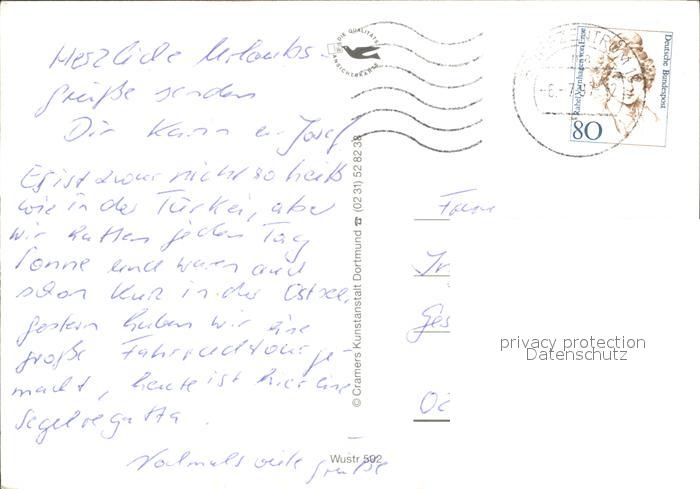 Herzliche Urlaubs-
grüße senden
Dir Karin u. Josef
Es ist zwar nicht so heiß
wie in der Türkei, aber
wir hatten jeden Tag
Sonne und waren auch
schon kurz in der Ostsee,
gestern haben wir eine
große Fahrradtour ge-
macht, heute ist hier eine
Segelregatta.
Nochmals viele Grüße
DIE QUALITÄTS
ANSICHTSKARTE
© Cramers Kunstanstalt Dortmund ☎ (02 31) 52 82 38
Wustr 502
Deutsche Bundespost
Rahel Varnhagen von Ense
80
Frau
Ges
02
privacy protection
Datenschutz